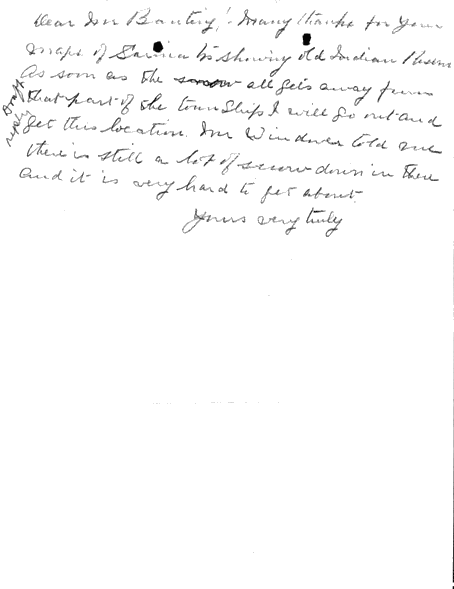 Dear Mr Banting! - Many thanks for your
maps of Sarnia Tp showing old Indian Reserve
As soon as the snow all gets away from
that part of the township I will go out and
get this location. Mr Windover told me
there is still a lot of snow down in there
and it is very hard to get about.
Yours very truly
Draft
reply